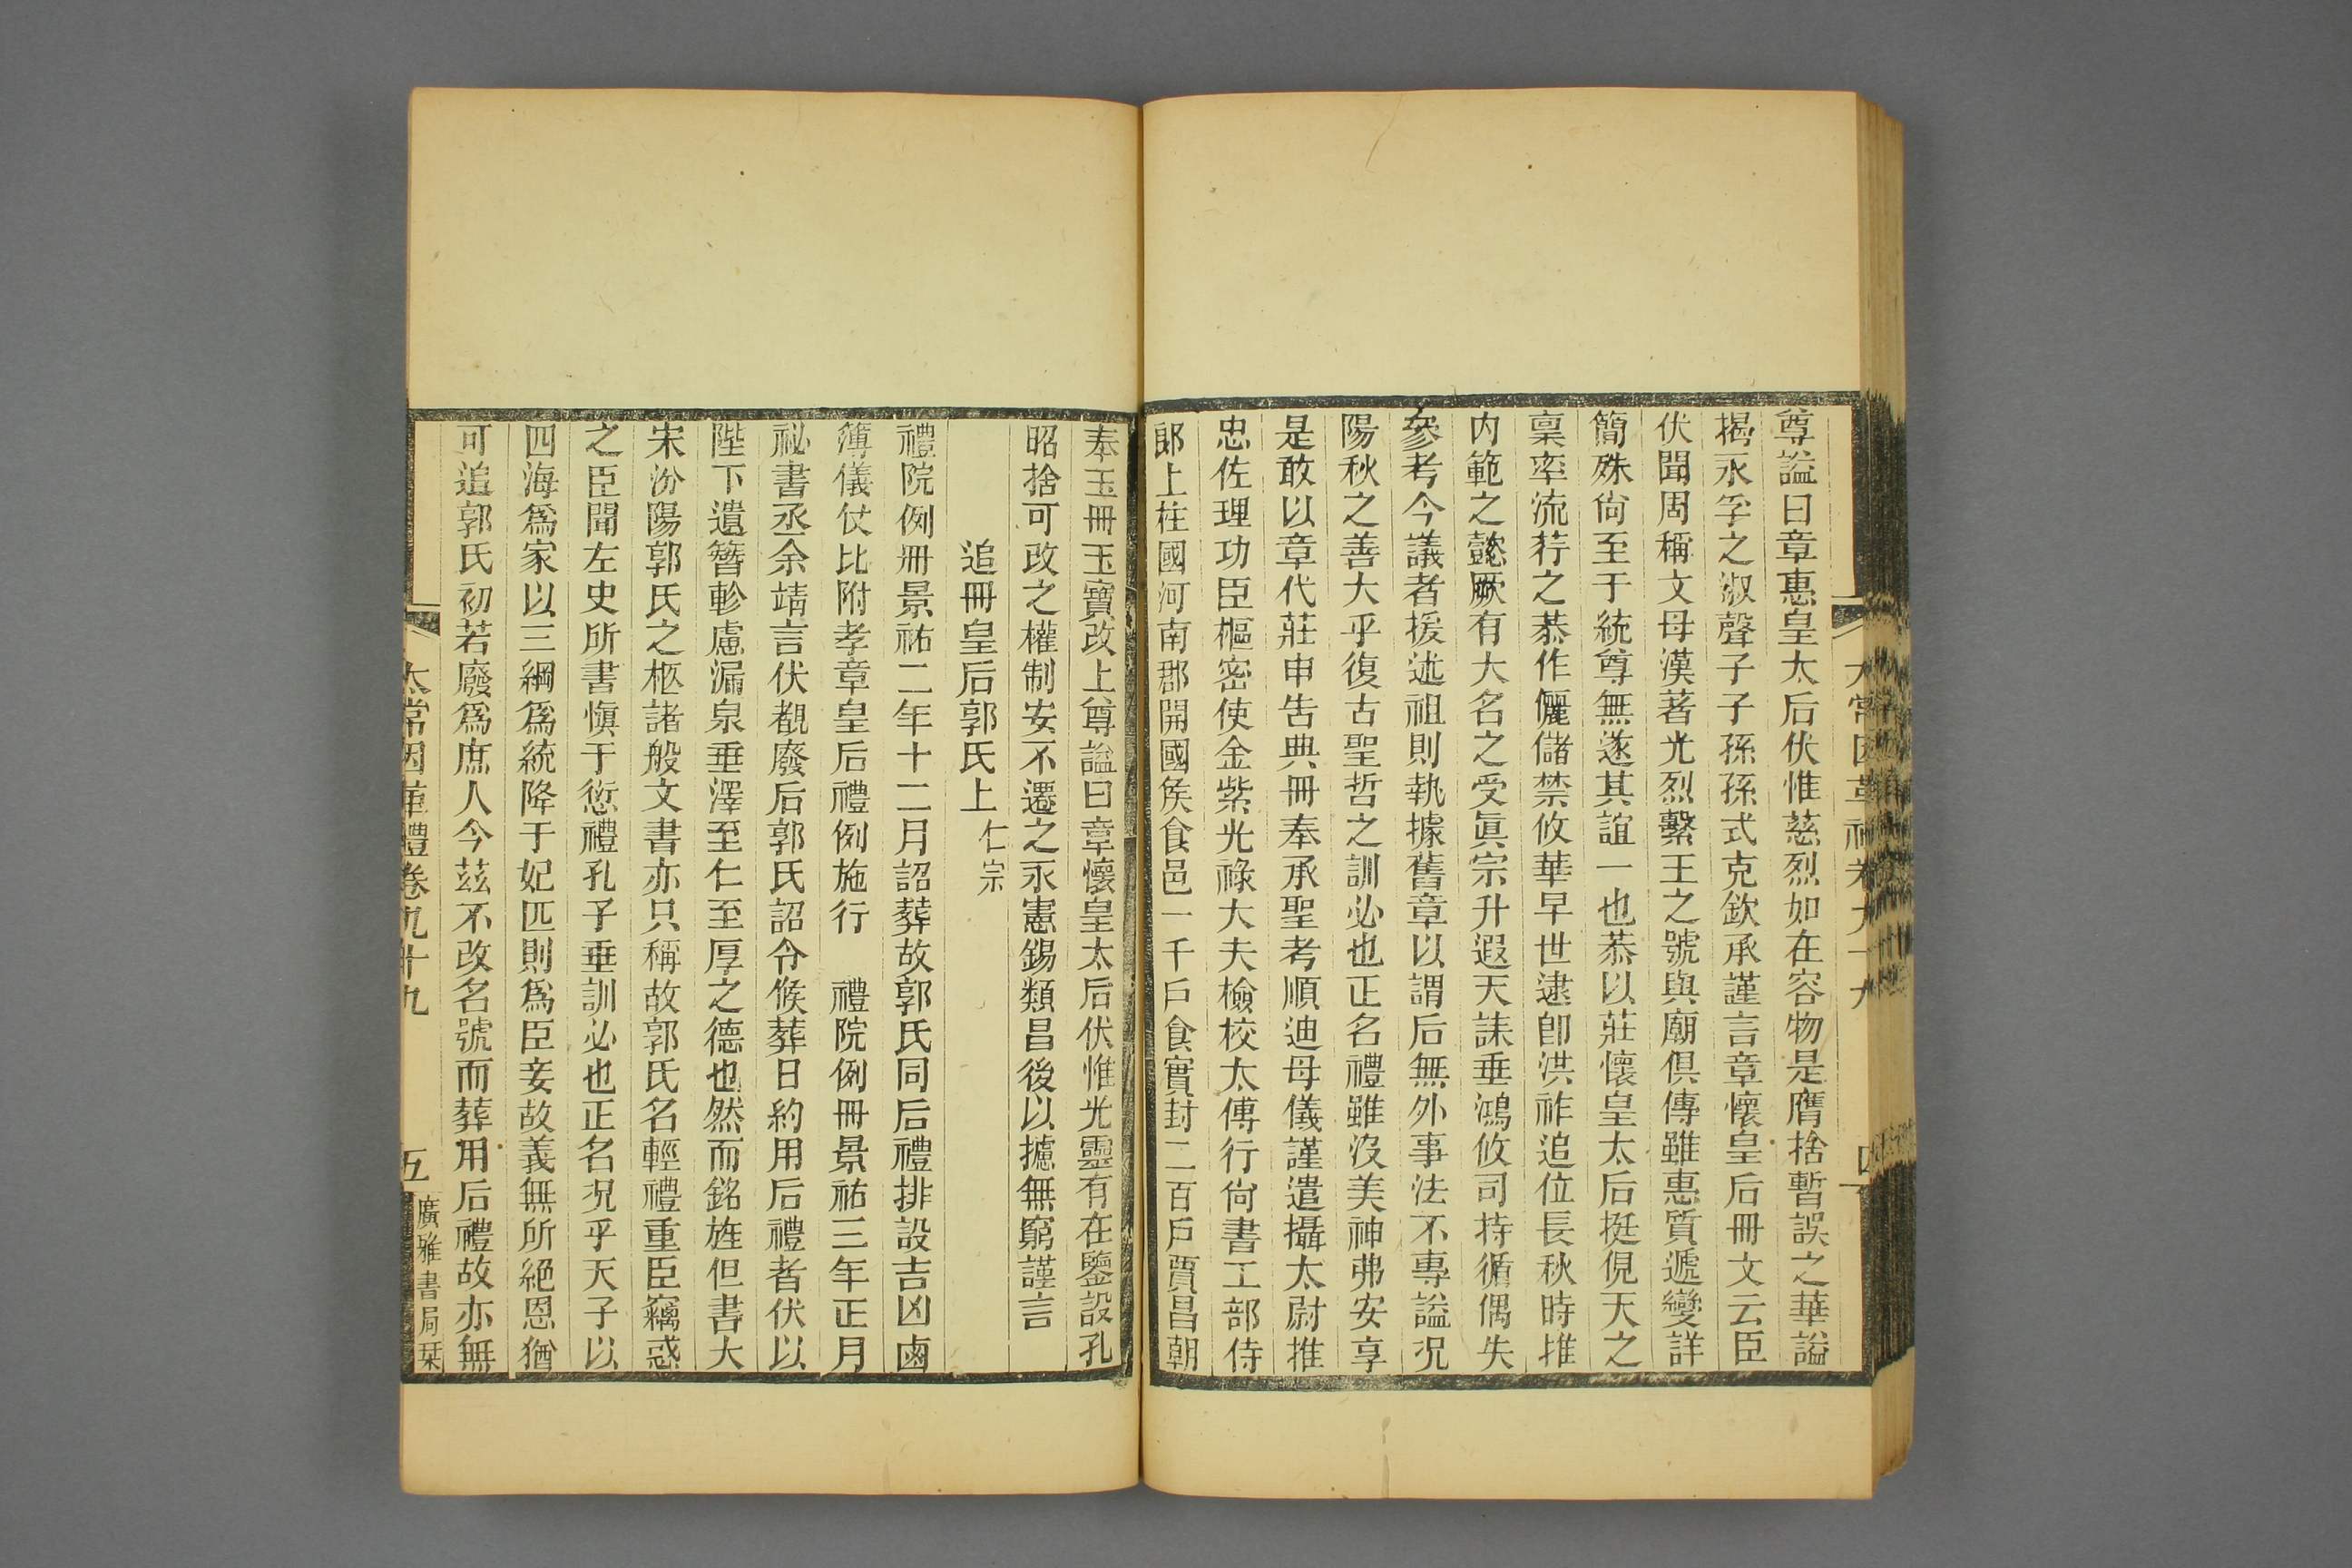 尊謚曰章惠皇太后伏惟慈烈如在容物是膺捨暫誤之華謚
揭永孚之淑聲子子孫孫式克欽承謹言章懷皇后冊文云臣
伏聞周稱文母漢著光烈繫王之號與廟俱傳雖惠質遞變詳
簡殊尙至于統尊無遂其誼一也恭以莊懷皇太后挺俔天之
稟率流荇之恭作儷儲禁攸華早世逮卽洪祚追位長秋時推
內範之懿厥有大名之受眞宗升遐天誄垂鴻攸司持循偶失
參考今議者援述祖則執據舊章以謂后無外事法不專謚況
陽秋之善大乎復古聖哲之訓必也正名禮雖沒美神弗安享
是敢以章代莊申告典冊奉承聖考順迪母儀謹遣攝太尉推
忠佐理功臣樞密使金紫光祿大夫檢校太傅行尙書工部侍
郎上柱國河南郡開國矦食邑一千戶食實封二百戶賈昌朝
奉玉冊玉寶改上尊謚曰章懷皇太后伏惟光靈有在鑒設孔
昭捨可改之權制安不遷之永憲錫類昌後以攄無窮謹言
追冊皇后郭氏上 仁宗
禮院例冊景祐二年十二月詔葬故郭氏同后禮排設吉凶鹵
簿儀仗比附孝章皇后禮例施行　禮院例冊景祐三年正月
祕書丞余靖言伏覩廢后郭氏詔令候葬日約用后禮者伏以
陛下遺簪軫慮漏泉垂澤至仁至厚之德也然而銘旌但書大
宋汾陽郭氏之柩諸般文書亦只稱故郭氏名輕禮重臣竊惑
之臣聞左史所書愼于愆禮孔子垂訓必也正名況乎天子以
四海爲家以三綱爲統降于妃匹則爲臣妾故義無所絕恩猶
可追郭氏初若廢爲庶人今茲不改名號而葬用后禮故亦無
太常因革禮卷九十九
五
廣雅書局栞